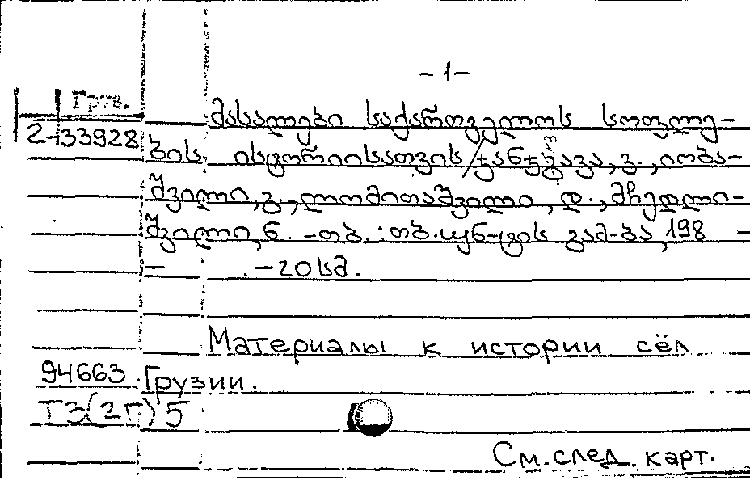 - 1 -
Груз.
2-33928
მასალები საქართველოს სოფლე-
ბის ისტორიისათვის / ჯანჯღავა, გ., იობა-
შვილი, გ., ლომითაშვილი, დ., მჩედლი-
შვილი, ნ. - თბ. : თბ. უნ-ტის გამ-ბა, 198 -
- . - 20 სმ.
Материалы к истории сёл
94663 Грузии.
Т3(2Г)5
См. след. карт.